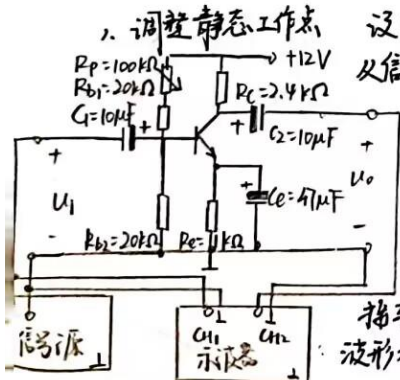 1、调整静态工作点 设
+12V
Rp=100kΩ
Rb1=20kΩ
Rc=2.4kΩ
从信
C1=10μF
+
+
C2=10μF
+
+
+
Ui
Ce=47μF
Uo
-
Rb2=20kΩ
Re=1kΩ
-
信号源
CH1
CH2
示波器
波形